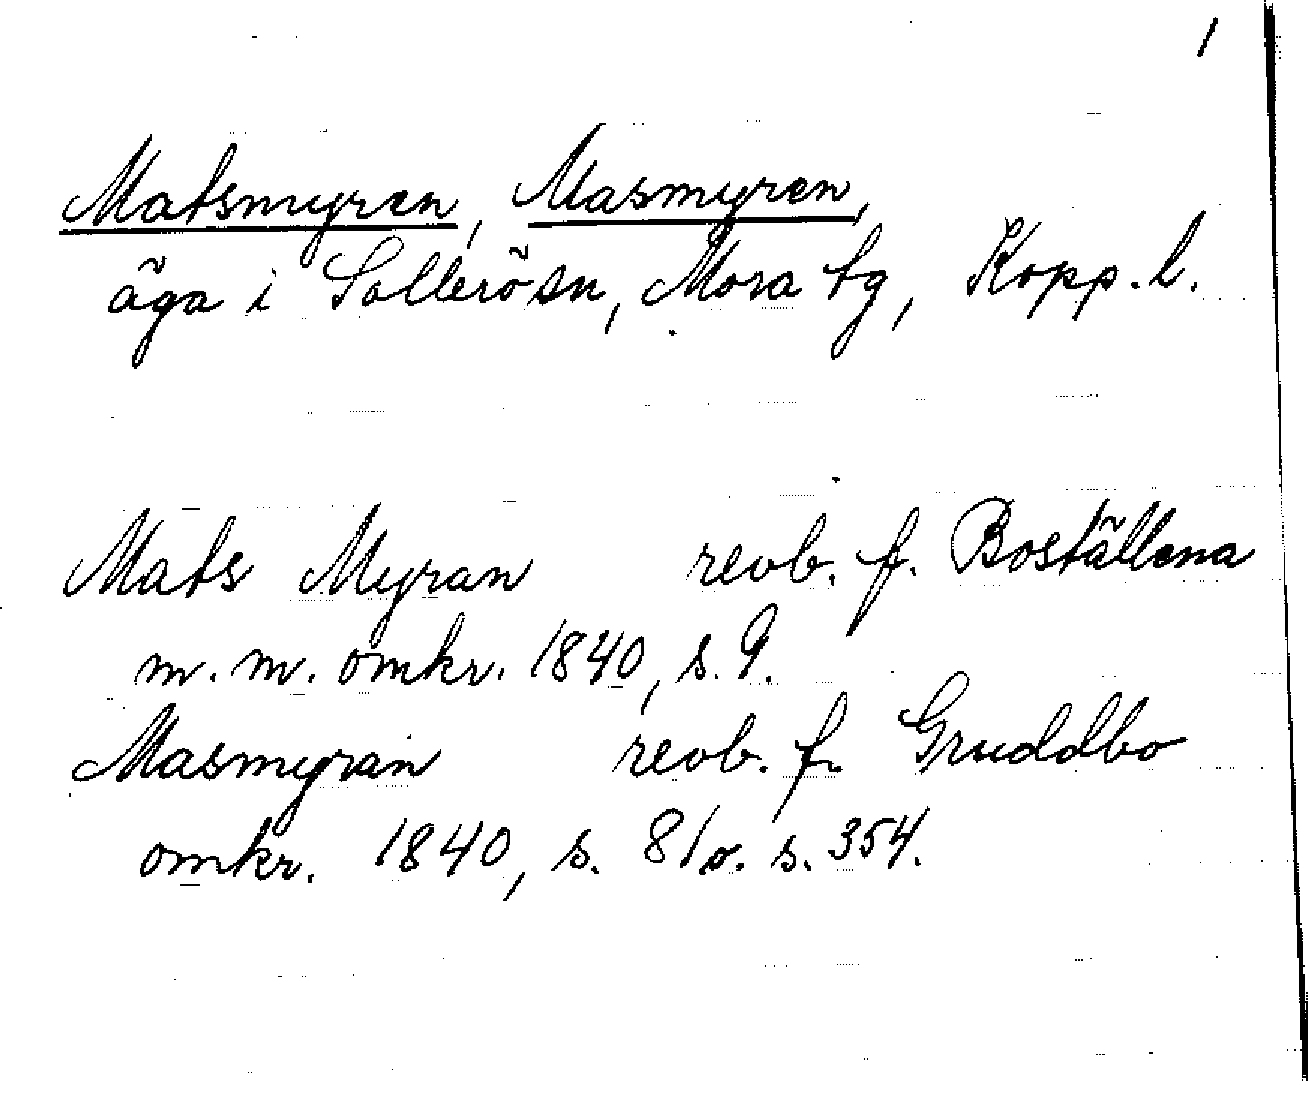 1
Matsmyren, Masmyren,
äga i Sollerön, Mora tg, Kopp. l.
Mats Myran revb. f. Boställena
m. m. omkr. 1840, s. 9.
Masmyran revb. f. Gruddbo
omkr. 1840, s. 81 o. s. 354.